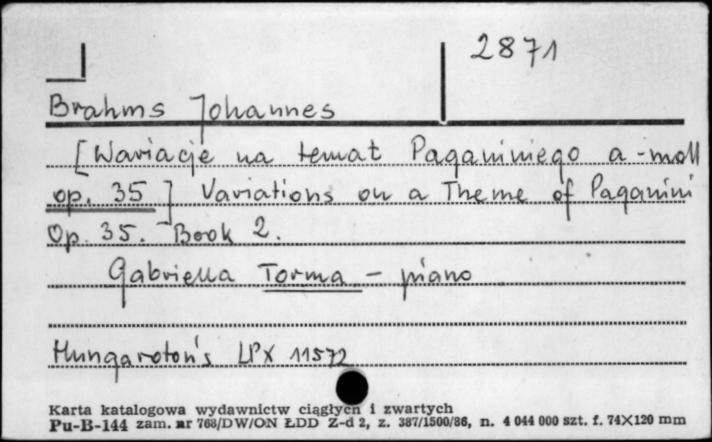 2871
Brahms Johannes
[Wariacje na temat Paganiniego a-moll
op. 35] Variations on a Theme of Paganini
Op. 35. Book 2.
Gabriella Torma - piano
Hungaroton's LPX 11572
Karta katalogowa wydawnictw ciągłych i zwartych
Pu-B-144 zam. nr 768/DW/ON ŁDD Z-d 2, z. 387/1500/86, n. 4 044 000 szt. f. 74X120 mm